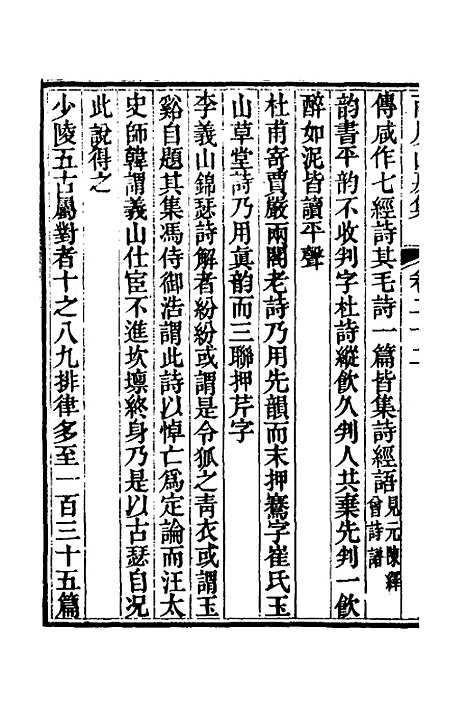 卷二十二
傳咸作七經詩其毛詩一篇皆集詩經語見元陳繹曾詩譜
韵書平韵不收判字杜詩縱飲久判人共棄先判一飲
醉如泥皆讀平聲
杜甫寄賈嚴兩閣老詩乃用先韻而末押騫字崔氏玉
山草堂詩乃用眞韵而三聯押芹字
李義山錦瑟詩解者紛紛或謂是令狐之靑衣或謂玉
谿自題其集馮侍御浩謂此詩以悼亡爲定論而汪太
史師韓謂義山仕宦不進坎壈終身乃是以古瑟自况
此說得之
少陵五古屬對者十之八九排律多至一百三十五篇